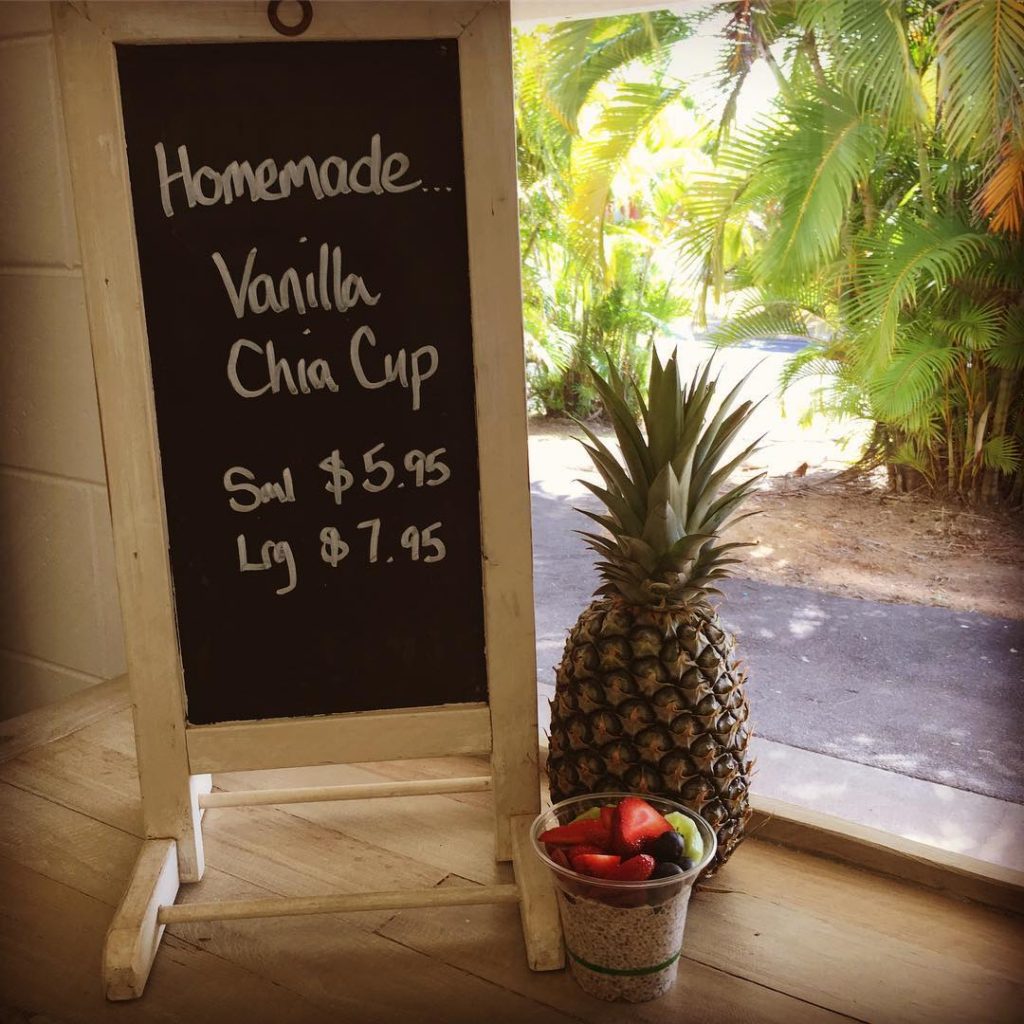 Homemade...
Vanilla
Chia Cup
Sml $5.95
Lrg $7.95